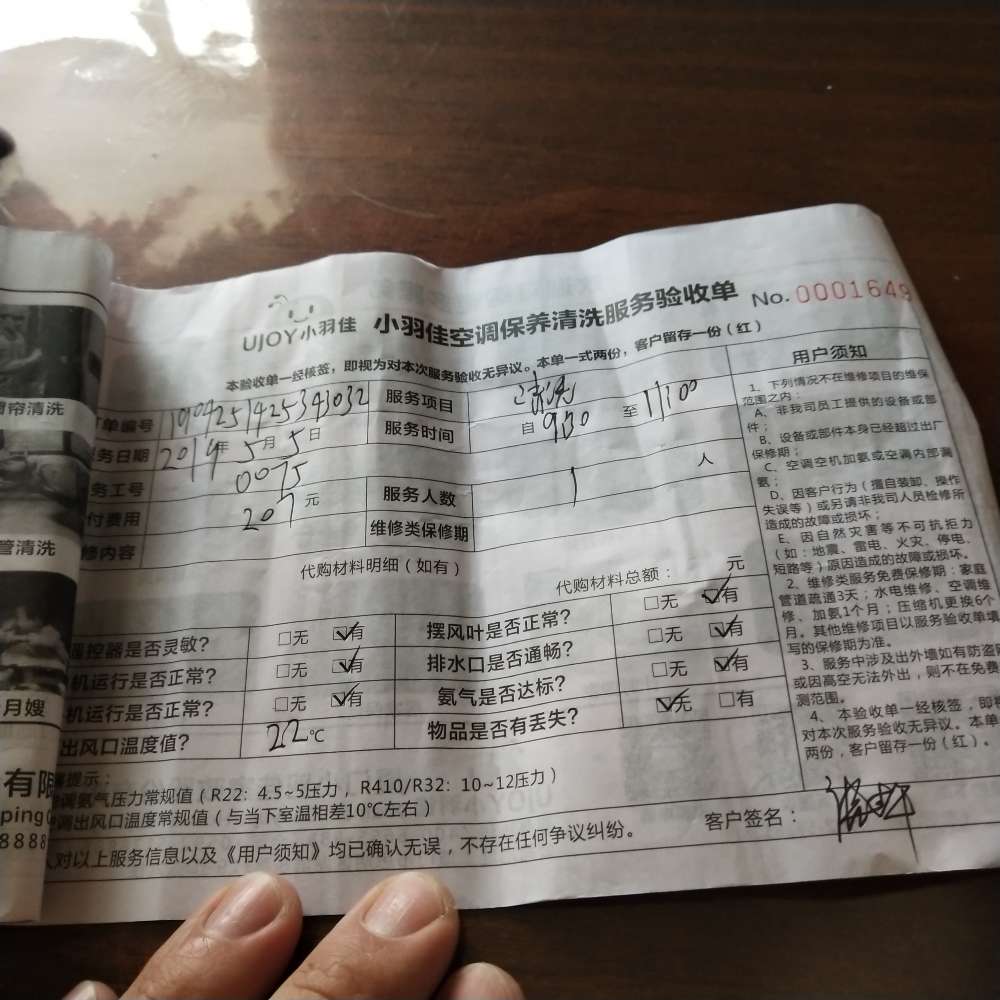 UJOY小羽佳 小羽佳空调保养清洗服务验收单 No. 0001649
本验收单一经核签，即视为对本次服务验收无异议。本单一式两份，客户留存一份（红）
单编号 服务项目 清洗
务日期 2019年5月5日 服务时间 自 9:30 至 11:00
务工号 0075 服务人数 1 人
付费用 207 元 维修类保修期
修内容
代购材料明细（如有） 代购材料总额： 元
控器是否灵敏? □无 ☑有 摆风叶是否正常? □无 ☑有
机运行是否正常? □无 ☑有 排水口是否通畅? □无 ☑有
机运行是否正常? □无 ☑有 氨气是否达标? □无 ☑有
出风口温度值? 22℃ 物品是否有丢失? ☑无 □有
提示：
调氨气压力常规值（R22: 4.5~5压力，R410/R32: 10~12压力）
调出风口温度常规值（与当下室温相差10℃左右）
对以上服务信息以及《用户须知》均已确认无误，不存在任何争议纠纷。 客户签名：
用户须知
1、下列情况不在维修项目的维保
范围之内：
A、非我司员工提供的设备或部
件；
B、设备或部件本身已经超过出厂
保修期；
C、空调空机加氨或空调内部漏
氨；
D、因客户行为（擅自装卸、操作
失误等）或另请非我司人员检修所
造成的故障或损坏；
E、因自然灾害等不可抗拒力
（如：地震、雷电、火灾、停电、
短路等）原因造成的故障或损坏。
2、维修类服务免费保修期：家庭
管道疏通3天；水电维修、空调维
修、加氨1个月；压缩机更换6个
月。其他维修项目以服务验收单填
写的保修期为准。
3、服务中涉及出外墙如有防盗
或因高空无法外出，则不在免费
测范围。
4、本验收单一经核签，即
对本次服务验收无异议。本单
两份，客户留存一份（红）。
帘清洗
管清洗
月嫂
有限
ping
8888